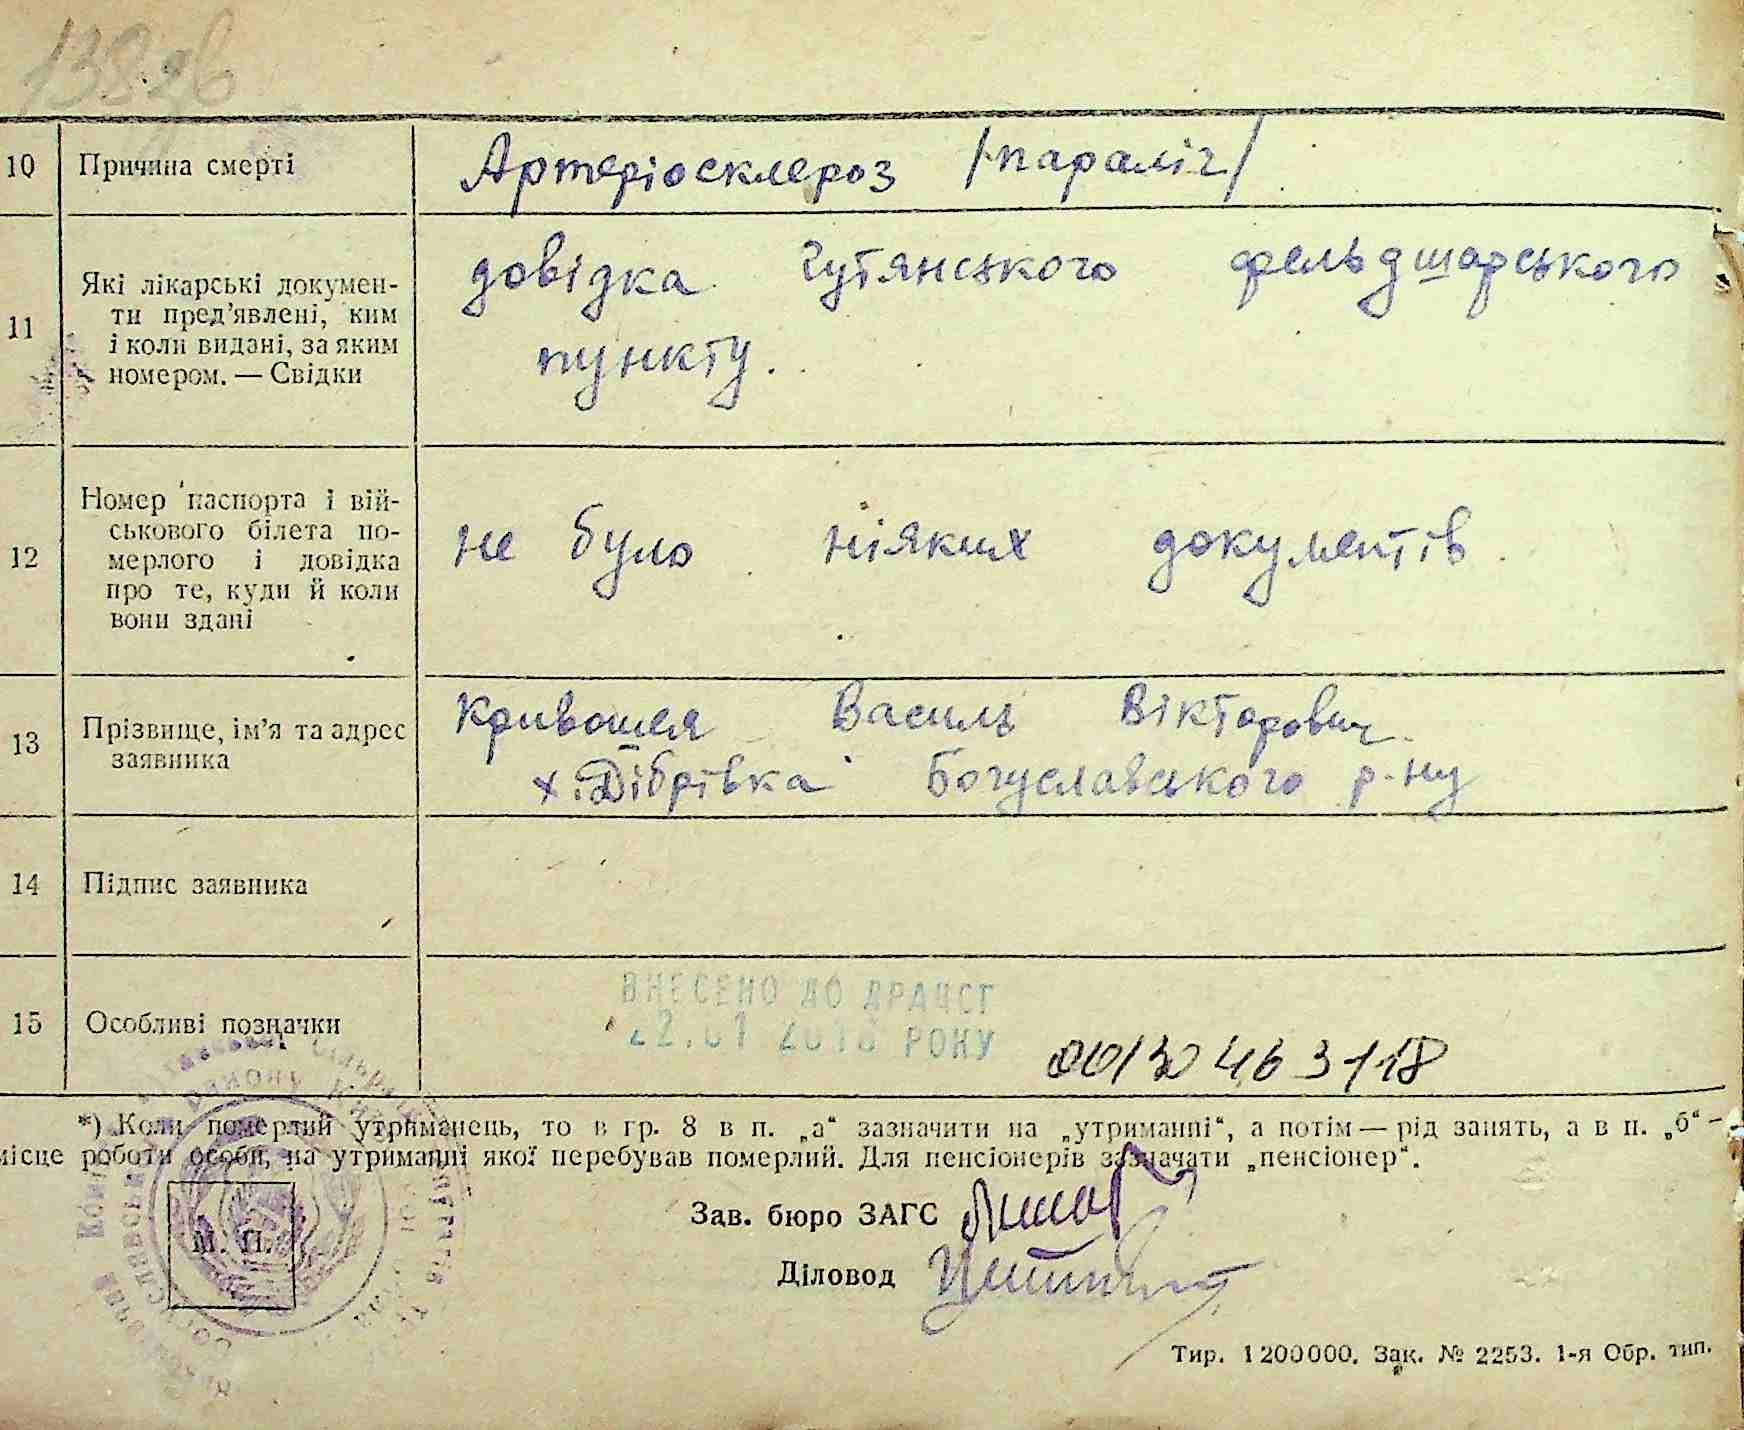 138 зв
10 Причина смерті Артеріосклероз /параліч/
11 Які лікарські докумен-
ти пред’явлені, ким
і коли видані, за яким
номером. — Свідки
довідка Чутянського фельдшарського
пункту.
12 Номер паспорта і вій-
ськового білета по-
мерлого і довідка
про те, куди й коли
вони здані
не було ніяких документів.
13 Прізвище, ім’я та адрес
заявника
Кривошея Василь Вікторович
х. Дібрівка Богуславського р-ну
14 Підпис заявника
15 Особливі позначки
ВНЕСЕНО ДО ДРАЦСГ
22.01 2018 РОКУ
00130463118
*) Коли померлий утриманець, то в гр. 8 в п. „а“ зазначити на „утриманні“, а потім — рід занять, а в п. „б“ –
місце роботи особи, на утриманні якої перебував померлий. Для пенсіонерів зазначати „пенсіонер“.
М. П.
Зав. бюро ЗАГС
Діловод
Тир. 1200000. Зак. № 2253. 1-я Обр. тип.